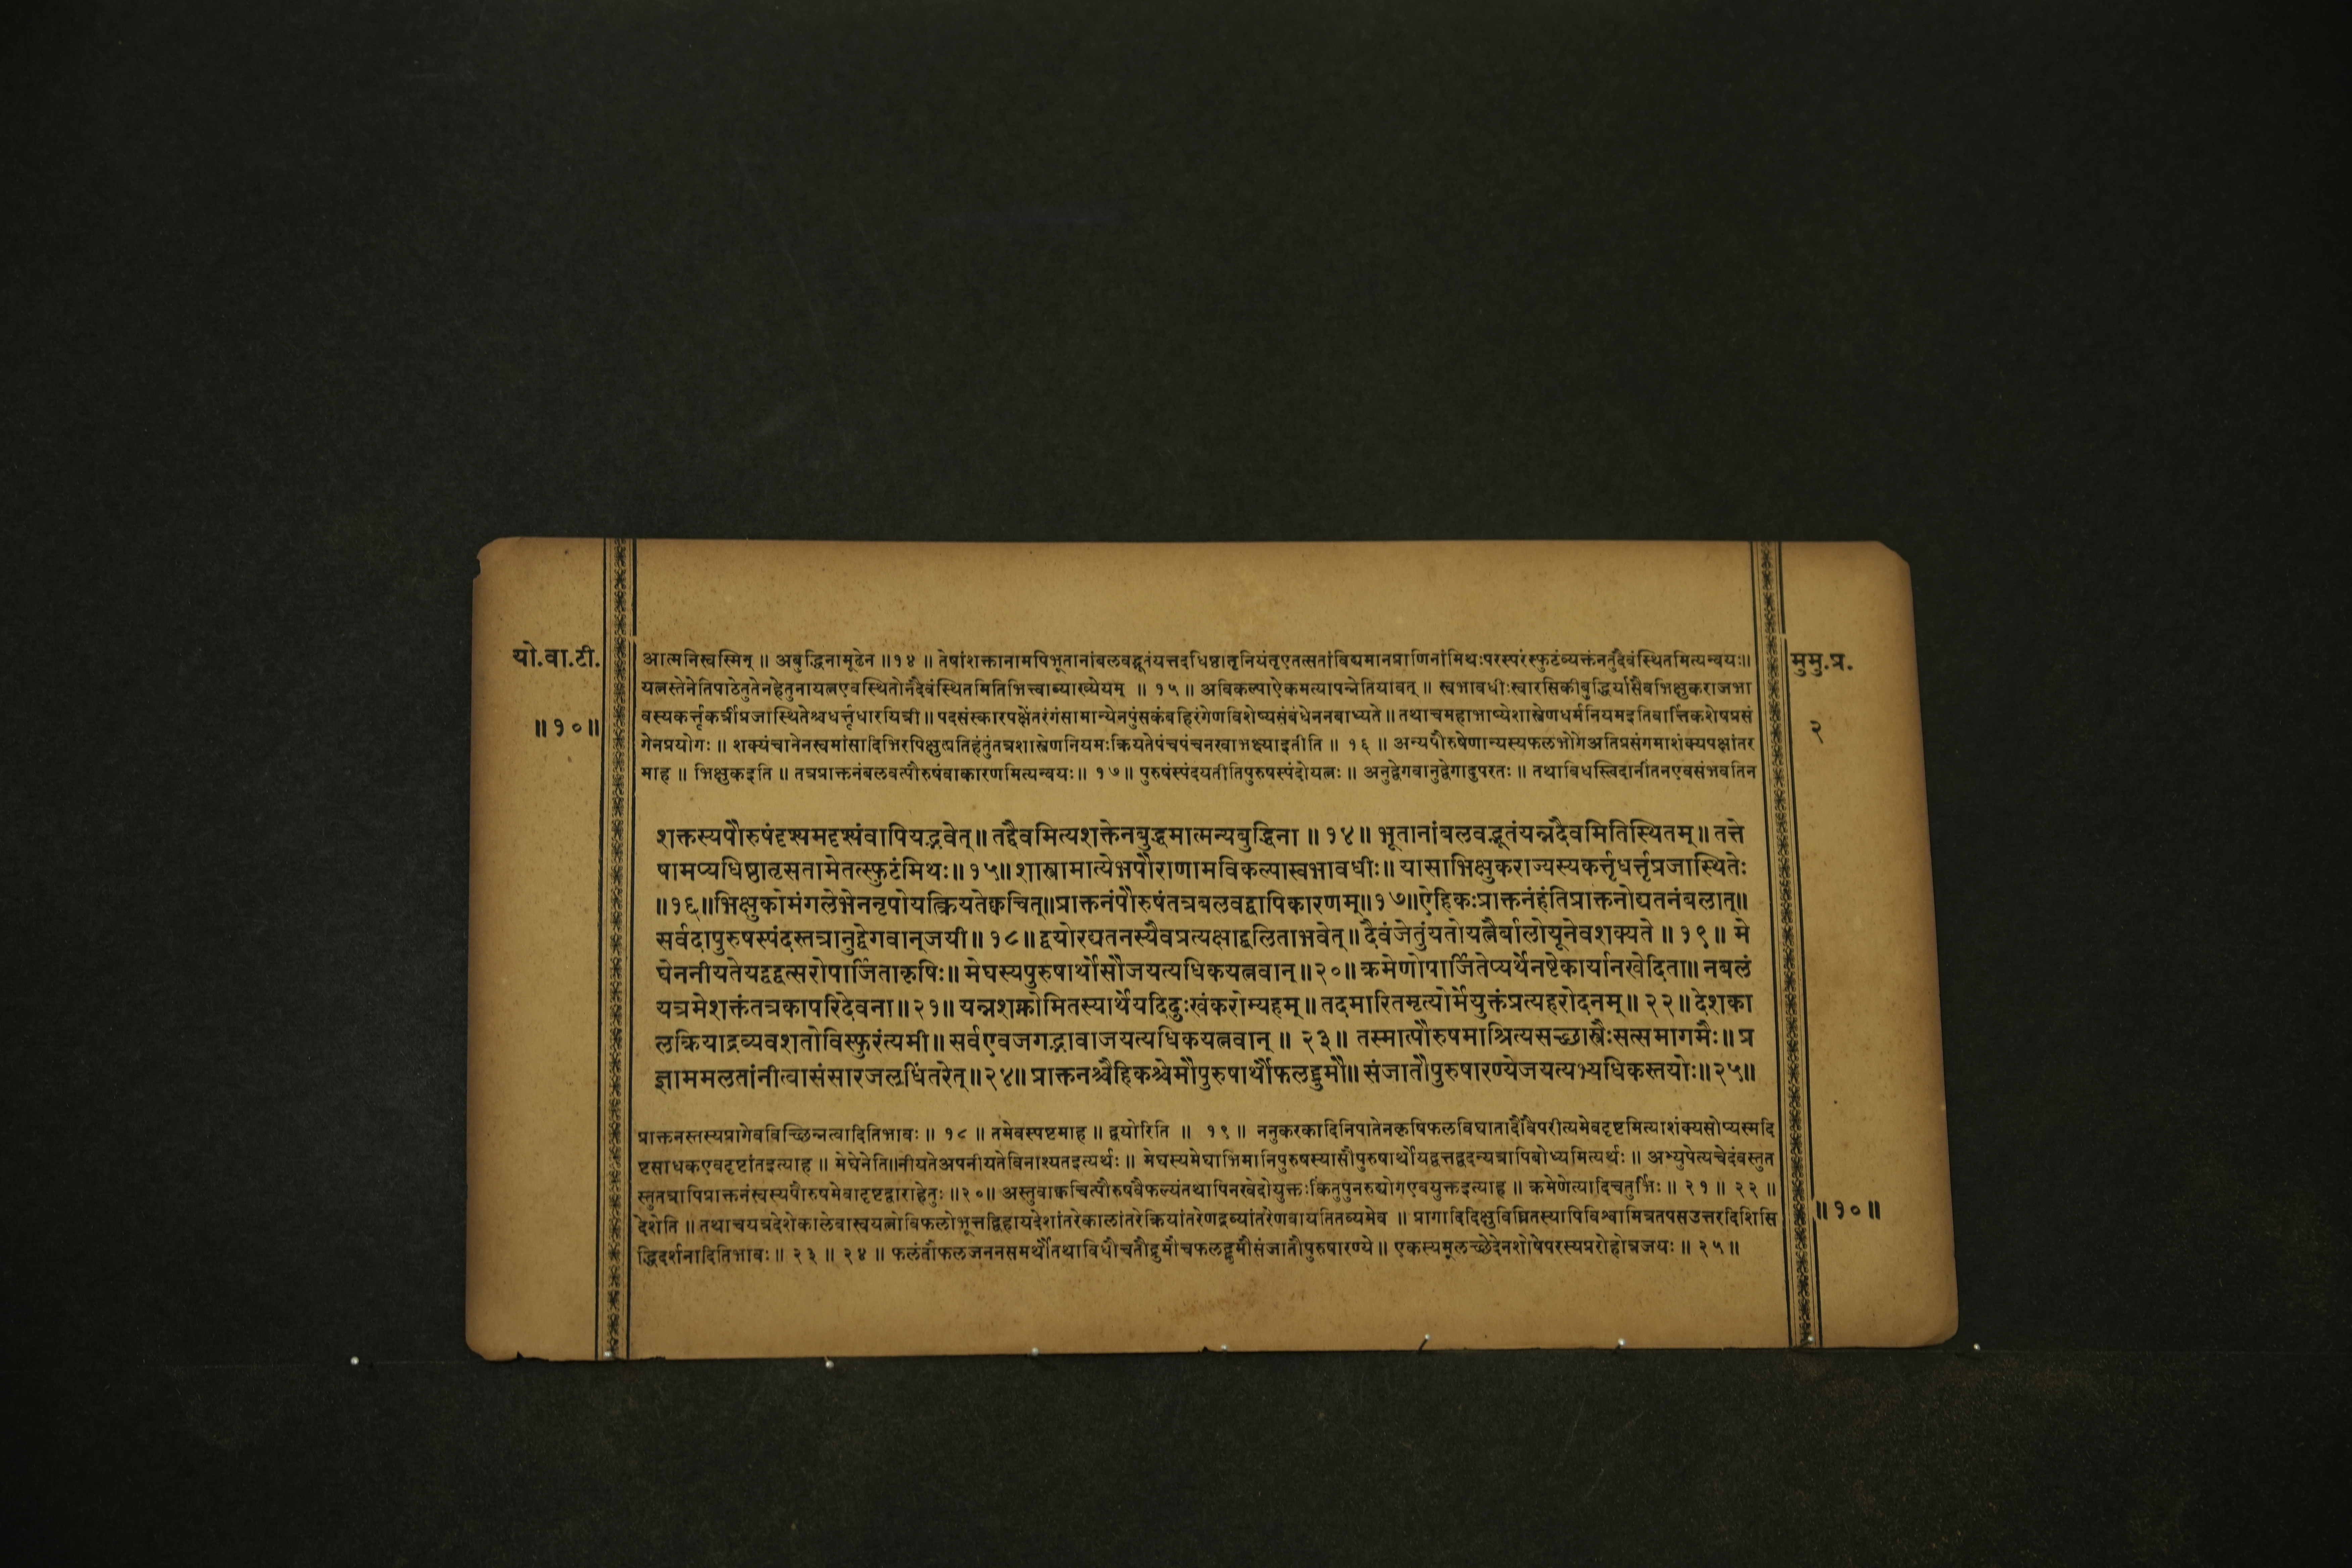 यो.वा.टी.
॥१०॥
आत्मनिस्वस्मिन् ॥ अबुद्धिनामूढेन ॥१४ ॥ तेषांशक्तानामपिभूतानांबलवद्भूतंयत्तदधिष्ठातृनियंतृएतत्सतांविद्यमानप्राणिनांमिथःपरस्परंस्फुटंव्यक्तंनतुदैवंस्थितमित्यन्वयः॥
यत्नस्तेनेतिपाठेतुतेनहेतुनायत्नएवस्थितोनदैवंस्थितमितिभित्त्वाव्याख्येयम् ॥ १५ ॥ अविकल्पाऐकमत्यापन्नेतियावत् ॥ स्वभावधीःस्वारसिकीबुद्धिर्यासैवभिक्षुकराजभा
वस्यकर्त्तृकर्त्रीप्रजास्थितेश्चधर्त्तृधारयित्री ॥ पदसंस्कारपक्षेंतरंगंसामान्येनपुंसकंबहिरंगेणविशेष्यसंबंधेननबाध्यते ॥ तथाचमहाभाष्येशास्त्रेणधर्मनियमइतिवार्त्तिकशेषप्रसं
गेनप्रयोगः ॥ शक्यंचानेनस्वमांसादिभिरपिक्षुत्प्रतिहंतुंतत्रशास्त्रेणनियमःक्रियतेपंचपंचनखाभक्ष्याइतीति ॥ १६ ॥ अन्यपौरुषेणान्यस्यफलभोगेअतिप्रसंगमाशंक्यपक्षांतर
माह ॥ भिक्षुकइति ॥ तत्रप्राक्तनंबलवत्पौरुषंवाकारणमित्यन्वयः॥ १७॥ पुरुषंस्पंदयतीतिपुरुषस्पंदोयत्नः ॥ अनुद्वेगवानुद्वेगादुपरतः ॥ तथाविधस्त्विदानींतनएवसंभवतिन
शक्तस्यपौरुषंदृश्यमदृश्यंवापियद्भवेत्॥ तद्दैवमित्यशक्तेनबुद्धमात्मन्यबुद्धिना ॥ १४॥ भूतानांबलवद्भूतंयन्नदैवमितिस्थितम्॥ तत्ते
षामप्यधिष्ठातृसतामेतत्स्फुटंमिथः॥१५॥ शास्त्रामात्येभपौराणामविकल्पास्वभावधीः॥ यासाभिक्षुकराज्यस्यकर्त्तृधर्त्तृप्रजास्थितेः
॥१६॥भिक्षुकोमंगलेभेननृपोयत्क्रियतेक्वचित्॥प्राक्तनंपौरुषंतत्रबलवद्वापिकारणम्॥१७॥ऐहिकःप्राक्तनंहंतिप्राक्तनोद्यतनंबलात्॥
सर्वदापुरुषस्पंदस्तत्रानुद्वेगवान्जयी॥ १८॥ द्वयोरद्यतनस्यैवप्रत्यक्षाद्बलिताभवेत्॥ दैवंजेतुंयतोयत्नैर्बालोयूनेवशक्यते ॥ १९॥ मे
घेननीयतेयद्वद्वत्सरोपार्जिताकृषिः॥ मेघस्यपुरुषार्थोसौजयत्यधिकयत्नवान्॥२०॥ क्रमेणोपार्जितेप्यर्थेनष्टेकार्यानखेदिता॥ नबलं
यत्रमेशक्तंतत्रकापरिदेवना॥२१॥ यन्नशक्नोमितस्यार्थेयदिदुःखंकरोम्यहम्॥ तदमारितमृत्योर्मेयुक्तंप्रत्यहरोदनम्॥ २२॥ देशका
लक्रियाद्रव्यवशतोविस्फुरंत्यमी॥ सर्वएवजगद्भावाजयत्यधिकयत्नवान् ॥ २३॥ तस्मात्पौरुषमाश्रित्यसच्छास्त्रैःसत्समागमैः॥ प्र
ज्ञाममलतांनीत्वासंसारजलधिंतरेत्॥२४॥ प्राक्तनश्चैहिकश्चेमौपुरुषार्थौफलद्रुमौ॥ संजातौपुरुषारण्येजयत्यभ्यधिकस्तयोः॥२५॥
प्राक्तनस्तस्यप्रागेवविच्छिन्नत्वादितिभावः ॥ १८ ॥ तमेवस्पष्टमाह ॥ द्वयोरिति ॥ १९ ॥ ननुकरकादिनिपातेनकृषिफलविघातादैवंवैपरीत्यमेवदृष्टमित्याशंक्यसोप्यस्मदि
ष्टसाधकएवदृष्टांतइत्याह ॥ मेघेनेति॥नीयतेअपनीयतेविनाश्यतइत्यर्थः ॥ मेघस्यमेघाभिमानिपुरुषस्यासौपुरुषार्थोयद्वत्तद्वदन्यत्रापिबोध्यमित्यर्थः ॥ अभ्युपेत्यचेदंवस्तुत
स्तुतत्रापिप्राक्तनंस्वस्यपौरुषमेवादृष्टद्वाराहेतुः ॥२०॥ अस्तुवाक्वचित्पौरुषवैफल्यंतथापिनखेदोयुक्तःकिंतुपुनरुद्योगएवयुक्तइत्याह ॥ क्रमेणेत्यादिचतुर्भिः ॥ २१ ॥ २२ ॥
देशेति ॥ तथाचयत्रदेशेकालेवास्वयत्नोविफलोभूत्तद्विहायदेशांतरेकालांतरेक्रियांतरेणद्रव्यांतरेणवायतितव्यमेव ॥ प्रागादिदिक्षुविघ्नितस्यापिविश्वामित्रतपसउत्तरदिशिसि
द्धिदर्शनादितिभावः ॥ २३ ॥ २४ ॥ फलंतौफलजननसमर्थौतथाविधौचतौद्रुमौचफलद्रुमौसंजातौपुरुषारण्ये ॥ एकस्यमूलच्छेदेनशोषेपरस्यप्ररोहोत्रजयः ॥ २५ ॥
मुमु.प्र.
२
॥१०॥